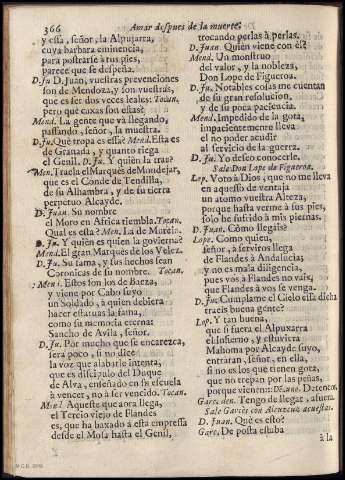 366 Amar despues de la muerte.
y essa, señor, la Alpujarra,
cuya barbara eminencia,
para postrarse à tus pies,
parece que se despeña.
D.Ju. D.Juan, vuestras prevenciones
son de Mendoza, y son vuestras,
que es ser dos veces leales: Tocan.
pero què caxas son estas?
Mend. La gente que và llegando,
passando, señor, la muestra.
D.Ju. Què tropa es esta? Mend. Esta es
de Granada, y quanto riega
el Genil. D.Ju. Y quien la trae?
Men. Traela el Marquès de Mondejar,
que es el Conde de Tendilla,
de su Alhambra, y de su tierra
perpetuo Alcayde.
D. Juan. Su nombre
el Moro en Africa tiembla. Tocan.
Qual es esta? Men. La de Murcia.
D.Ju. Y quièn es quien la govierna?
Mend. El gran Marquès de los Velez.
D.Ju. Su fama, y sus hechos sean
Coronicas de su nombre. Tocan.
Men. Estos son los de Baeza,
y viene por Cabo suyo
un Soldado, à quien debiera
hacer estatuas la fama,
como su memoria eterna:
Sancho de Avila, señor.
D.Ju. Por mucho que se encarezca,
serà poco, si no dice
la voz que alabarle intenta,
que es discipulo del Duque
de Alva, enseñado en su escuela
à vencer, no à ser vencido. Tocan.
Men. Aqueste que aora llega,
el Tercio viejo de Flandes
es, que ha baxado à esta empressa
desde el Mosa hasta el Genil,
trocando perlas à perlas.
D. Juan. Quièn viene con èl?
Mend. Un monstruo
del valor, y la nobleza,
Don Lope de Figueroa.
D. Ju. Notables cosas me cuentan
de su gran resolucion,
y de su poca paciencia.
Mend. Impedido de la gota,
impacientemente lleva
el no poder acudir
al servicio de la guerra.
D. Ju. Yo deseo conocerle.
Sale Don Lope de Figueroa.
Lop. Voto à Dios, que no me lleva
en aquesso de ventaja
un atomo vuestra Alteza,
porque hasta verme à sus pies,
solo he sufrido à mis piernas.
D. Juan. Còmo llegais?
Lop. Como quien,
señor, à serviros llega
de Flandes à Andalucia;
y no es mala diligencia,
pues vos à Flandes no vais,
que Flandes à vos se venga.
D. Ju. Cumplame el Cielo essa dicha:
traeis buena gente?
Lop. Y tan buena,
que si fuera el Alpuxarra
el Infierno, y estuviera
Mahoma por Alcayde suyo,
entràran, señor, en ella,
si no es los que tienen gota,
que no trepan por las peñas,
porque vienen::- Dè.uno. Deteneos.
Garc. den. Tengo de llegar, afuera.
Sale Garcès con Alcuzcuz acuestas.
D. Juan. Què es esto?
Garc. De posta estaba
à la